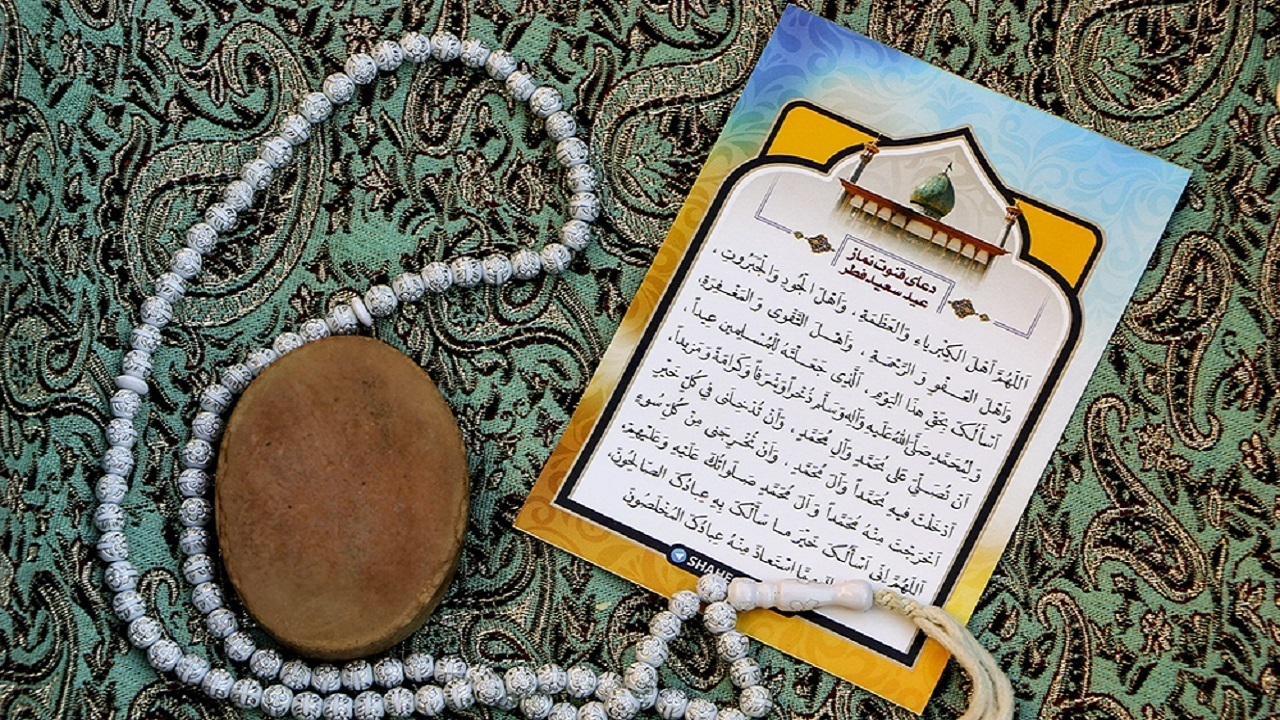 دعای قنوت نماز
عید سعید فطر
اَللّهُمَّ اَهْلَ الْكِبْرِیاءِ وَالْعَظَمَةِ ، وَاَهْلَ الْجُودِ وَالْجَبَرُوتِ ،
وَاَهْلَ الْعَفْوِ وَ الرَّحْمَةِ ، وَ اَهْلَ التَّقْوى وَ الْمَغْفِرَةِ،
اَسْأَلُكَ بِحَقِّ هذَا الْیَوْمِ ، اَلَّذى جَعَلْتَهُ لِلْمُسْلِمینَ عیداً ،
وَ لِمُحَمَّدٍ صَلَّی اللهُ عَلَیهِ وَآلِهِ وَسَلَّم ذُخْراً وَ شَرَفاً وَ كَرامَةً وَ مَزیداً،
اَنْ تُصَلِّىَ عَلى مُحَمَّدٍ وَآلِ مُحَمَّدٍ ، وَاَنْ تُدْخِلَنى فى كُلِّ خَیْرٍ
اَدْخَلْتَ فیهِ مُحَمَّداً وَآلَ مُحَمَّدٍ ، وَاَنْ تُخْرِجَنى مِنْ كُلِّ سُوءٍ
اَخْرَجْتَ مِنْهُ مُحَمَّداً وَ آلَ مُحَمَّدٍ صَلَواتُكَ عَلَیْهِ وَعَلَیْهِمْ،
اَللّهُمَّ اِنّى اَسْأَلُكَ خَیْرَ ما سَأَلَكَ بِهِ عِبادُكَ الصّالِحُونَ،
اسْتَعاذَ مِنْهُ عِبادُكَ الْمُخْلَصُونَ
SHAHE